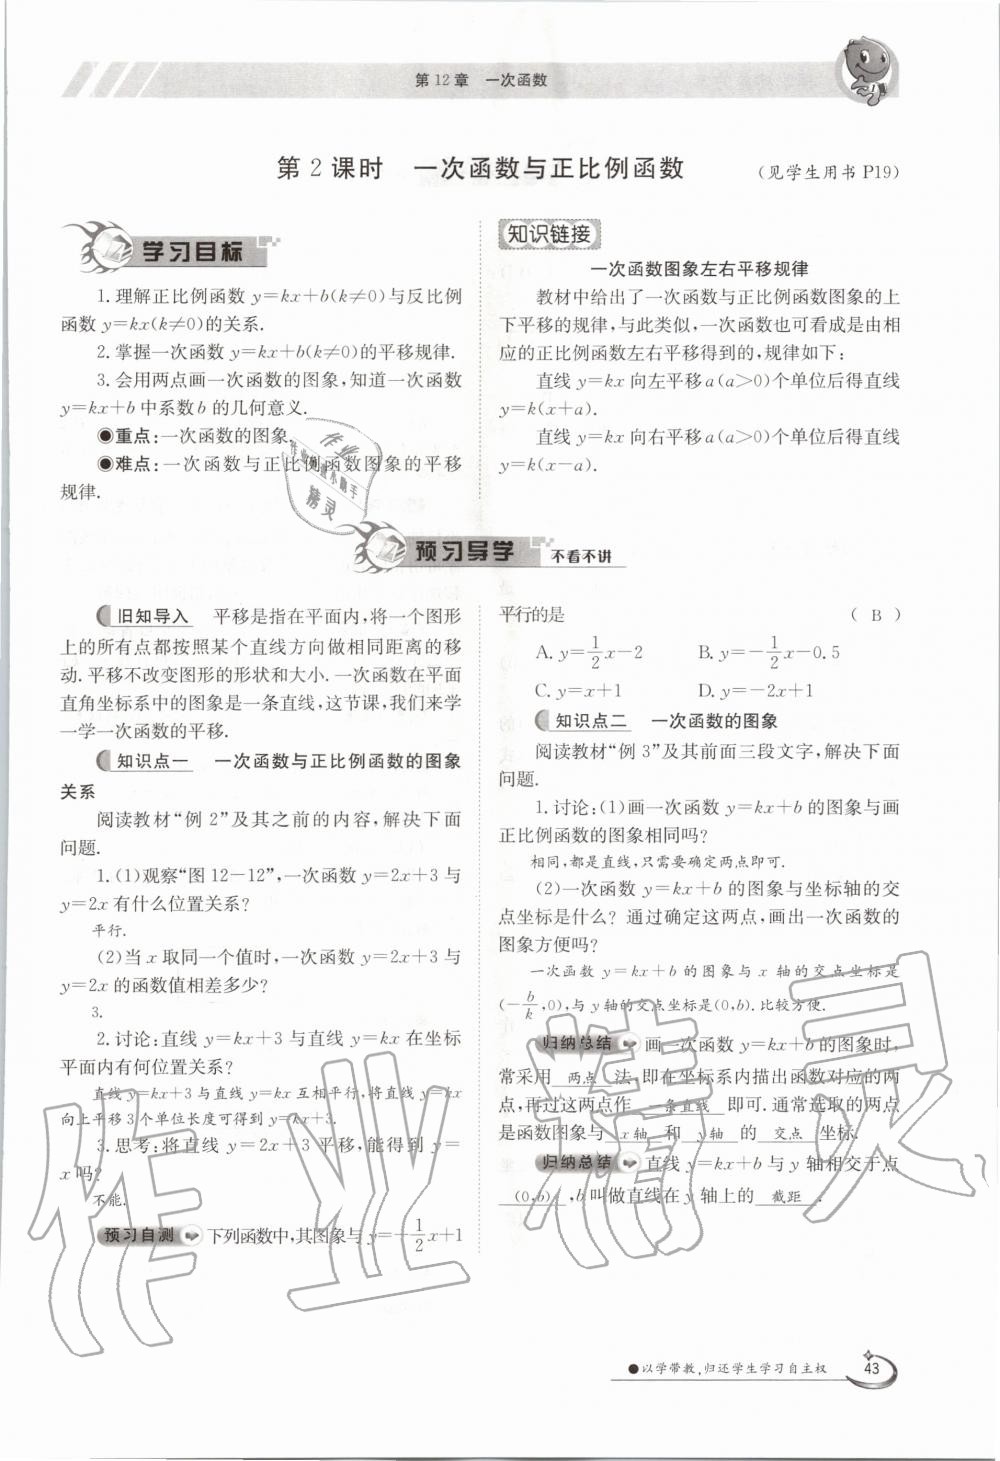 第12章 一次函数
第2课时 一次函数与正比例函数 (见学生用书 P19)
学习目标
1.理解正比例函数 y=kx+b(k≠0)与反比例
函数 y=kx(k≠0)的关系.
2.掌握一次函数 y=kx+b(k≠0)的平移规律.
3.会用两点画一次函数的图象,知道一次函数
y=kx+b 中系数 b 的几何意义.
●重点:一次函数的图象.
●难点:一次函数与正比例函数图象的平移
规律.
知识链接
一次函数图象左右平移规律
教材中给出了一次函数与正比例函数图象的上
下平移的规律,与此类似,一次函数也可看成是由相
应的正比例函数左右平移得到的,规律如下:
直线 y=kx 向左平移 a(a>0)个单位后得直线
y=k(x+a).
直线 y=kx 向右平移 a(a>0)个单位后得直线
y=k(x-a).
预习导学 不看不讲
旧知导入 平移是指在平面内,将一个图形
上的所有点都按照某个直线方向做相同距离的移
动.平移不改变图形的形状和大小.一次函数在平面
直角坐标系中的图象是一条直线,这节课,我们来学
一学一次函数的平移.
知识点一 一次函数与正比例函数的图象
关系
阅读教材“例 2”及其之前的内容,解决下面
问题.
1.(1)观察“图 12-12”,一次函数 y=2x+3 与
y=2x 有什么位置关系?
平行.
(2)当 x 取同一个值时,一次函数 y=2x+3 与
y=2x 的函数值相差多少?
3.
2.讨论:直线 y=kx+3 与直线 y=kx 在坐标
平面内有何位置关系?
直线 y=kx+3 与直线 y=kx 互相平行,将直线 y=kx
向上平移 3 个单位长度可得到 y=kx+3.
3.思考:将直线 y=2x+3 平移,能得到 y=
x 吗?
不能.
预习自测 下列函数中,其图象与 y=-1/2x+1
平行的是 ( B )
A. y=1/2x-2 B. y=-1/2x-0.5
C. y=x+1 D. y=-2x+1
知识点二 一次函数的图象
阅读教材“例 3”及其前面三段文字,解决下面
问题.
1.讨论:(1)画一次函数 y=kx+b 的图象与画
正比例函数的图象相同吗?
相同,都是直线,只需要确定两点即可.
(2)一次函数 y=kx+b 的图象与坐标轴的交
点坐标是什么?通过确定这两点,画出一次函数的
图象方便吗?
一次函数 y=kx+b 的图象与 x 轴的交点坐标是
(-b/k,0),与 y 轴的交点坐标是(0,b).比较方便.
归纳总结 画一次函数 y=kx+b 的图象时,
常采用 两点 法,即在坐标系内描出函数对应的两
点,再过这两点作 一条直线 即可.通常选取的两点
是函数图象与 x轴 和 y轴 的 交点 坐标.
归纳总结 直线 y=kx+b 与 y 轴相交于点
(0,b) ,b 叫做直线在 y 轴上的 截距 .
●以学带教,归还学生学习自主权 43
作业精灵